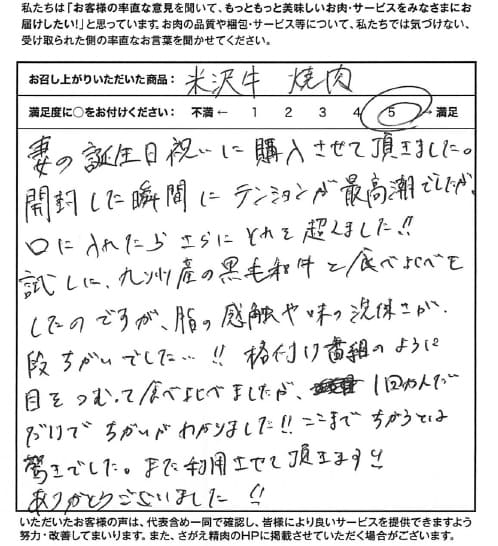 私たちは「お客様の率直な意見を聞いて、もっともっと美味しいお肉・サービスをみなさまにお
届けしたい!」と思っています。お肉の品質や梱包・サービス等について、私たちでは気づけない、
受け取られた側の率直なお言葉を聞かせてください。
お召し上がりいただいた商品： 米沢牛 焼肉
満足度に○をお付けください： 不満 ← 1 2 3 4 5 → 満足
妻の誕生日祝いに購入させて頂きました。
開封した瞬間にテンションが最高潮でしたが、
口に入れたらさらにそれを超えました!!
試しに、九州産の黒毛和牛と食べよべを
したのですが、脂の感触や味の濃さが、
段ちがいでした…!! 格付け番組のように
目をつむって食べよべましたが、1回かんだ
だけでちがいがわかりました!! ここまでちがうとは
驚きでした。また利用させて頂きます!!
ありがとうございました!!
いただいたお客様の声は、代表含め一同で確認し、皆様により良いサービスを提供できますよう
努力・改善してまいります。また、さがえ精肉のHPに掲載させていただく場合がございます。